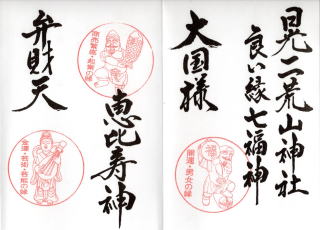 晃二荒山神社
良い縁七福神
大国様
開運・男女の縁
恵比寿神
商売繁盛・起業の縁
弁財天
金運・芸術・芸能の縁